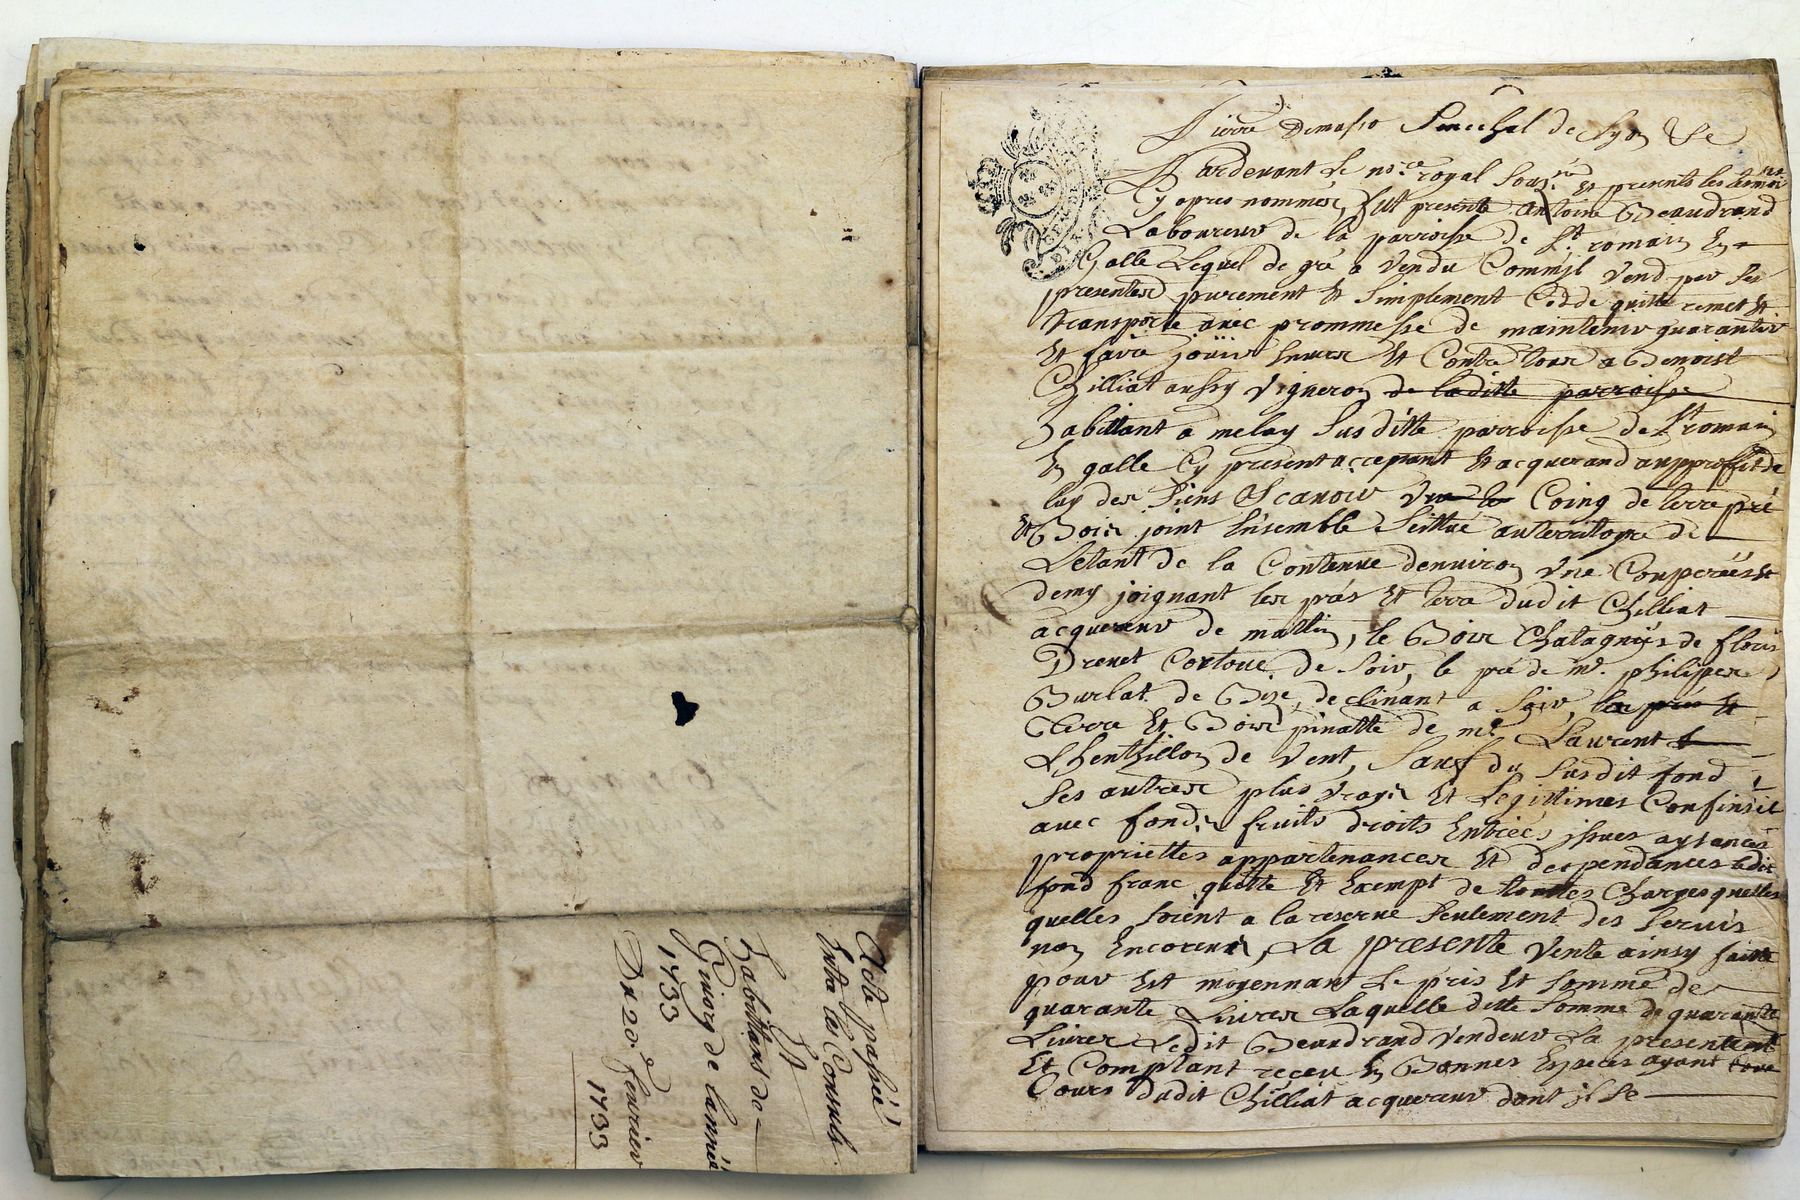 Acte passée
Entre les Consuls
Et
habittans de
Guiorg de lannée
1733
Du 20.e feurier
1733
Pierre Demasso Senechal de Lyon &c
Pardeuant Le no.re royal Sous.né Et presents les temoins
Cy apres nommés, fut presente antoine Beaudrand
Laboureur de la parroisse de S.t romain En
Galle Lequel de gré a vendu Commjl vend par Ses
presentes purement Et Simplement Cedde quitte remet Et
transporte auec prommesse de maintenir guarantir
Et faire joüir Enuers Et Contre tous a Benoist
Chilliat aussy vigneron de laditte parroisse
habittant a melay Susditte parroisse de S.t romain
En galle Cy present acceptant Et acquerand aupproffit de
luy des Siens Ascauoir vn Coing de terre pré
Et Bois joint Ensemble Seittué auterritoyre de
Letant de la Contenue denuiron vne Couperée Et
demy joignant les prés Et terre dudit Chilliat
acquereur de mattin, le Bois Chatagniés de flouris
Drevet Contoue de Soir, le pré de m.r philipes
Burlat de Bize, declinant a Soir, les prés Et
Terre Et Bois pinatte de m.r Laurent
Lhenthillon de vent, Sauf du Susdit fond
Ses autres plus vrays Et Legittimes Confins Et
auec fonds fruits droits Entrées jssues aysances
propriettes appartenances Et despendances Ledit
fond franc quitte Et Exempt de touttes Charges quelles
quelles Soient a la reserue Seulement des Seruis
non Encoreus, La presente vente ainsy faitte
pour Et moyennant Le pris Et Somme de
quarante Liures Laquelle ditte Somme de quarante
Liures Ledit Beaudrand vendeur La presentemt
Et Comptant receu En Bonnes Especes ayant Cour
Cours dudit Chilliat acquereur dont jl Se